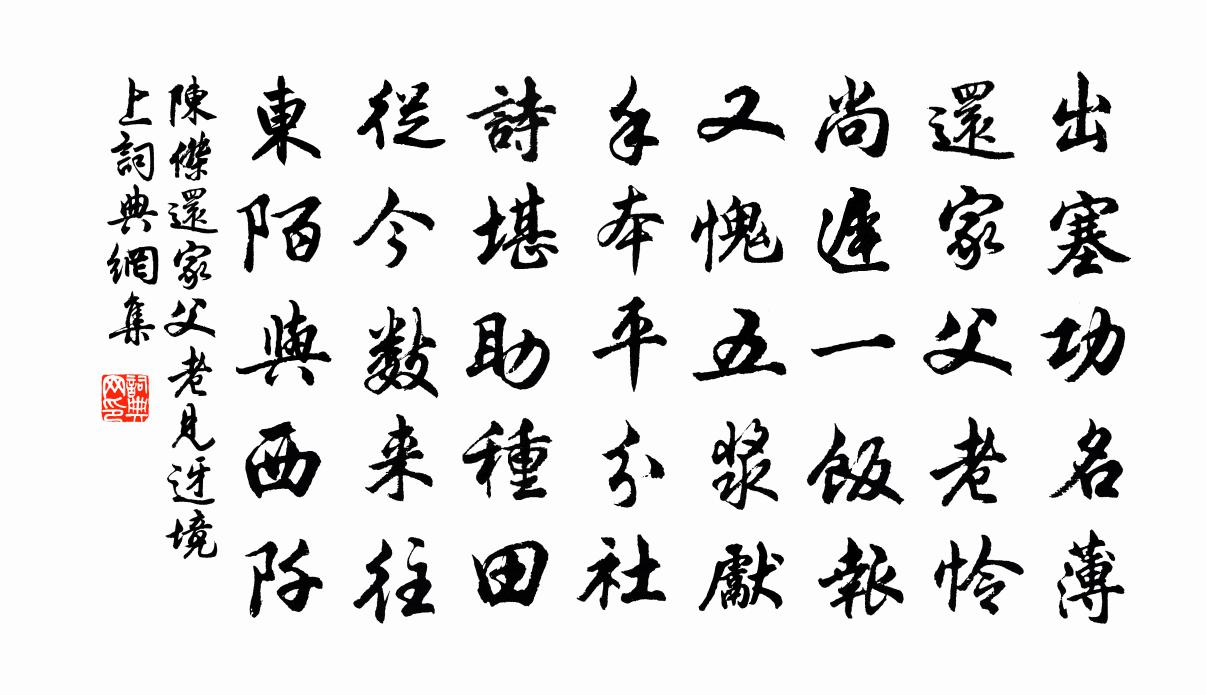 出塞功名薄
還家父老怜
尚遲一飯報
又愧五漿獻
手本平分社
詩堪助種田
從今數来往
東陌與西阡
陳傑還家父老見迓境
上詞典網集
詞典
网印